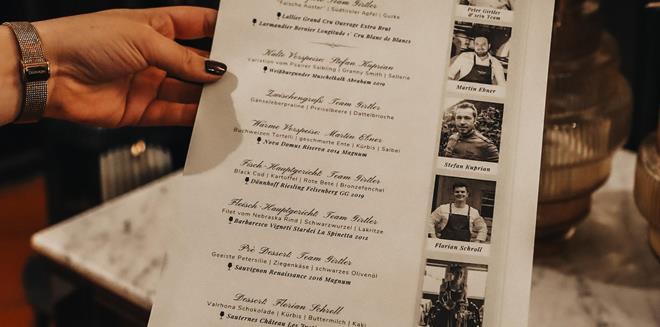 Team Girtler
"Falsche Auster" | Südtiroler Apfel | Gurke
Lallier Grand Cru Ouvrage Extra Brut
Larmandier Bernier Longitude 1° Cru Blanc de Blancs
Kalte Vorspeise: Stefan Kuprian
Variation vom Pseirer Saibling | Granny Smith | Sellerie
Weißburgunder Muschelkalk Abraham 2019
Zwischengruß: Team Girtler
Gänseleberpraline | Preiselbeere | Dattelbrioche
Warme Vorspeise: Martin Ebner
Buchweizen Tortelli | geschmorte Ente | Kürbis | Salbei
Nova Domus Riserva 2014 Magnum
Fisch-Hauptgericht: Team Girtler
Black Cod | Kartoffel | Rote Bete | Bronzefenchel
Dönnhoff Riesling Felsenberg GG 2019
Fleisch-Hauptgericht: Team Girtler
Filet vom Nebraska Rind | Schwarzwurzel | Lakritze
Barbaresco Vigneti Starderi La Spinetta 2012
Pré Dessert: Team Girtler
Geeiste Petersilie | Ziegenkäse | schwarzes Olivenöl
Sauvignon Renaissance 2016 Magnum
Dessert: Florian Schroll
Valrhona Schokolade | Kürbis | Buttermilch | Kaki
Sauternes Château Les
Peter Girtler
& sein Team
Martin Ebner
Stefan Kuprian
Florian Schroll